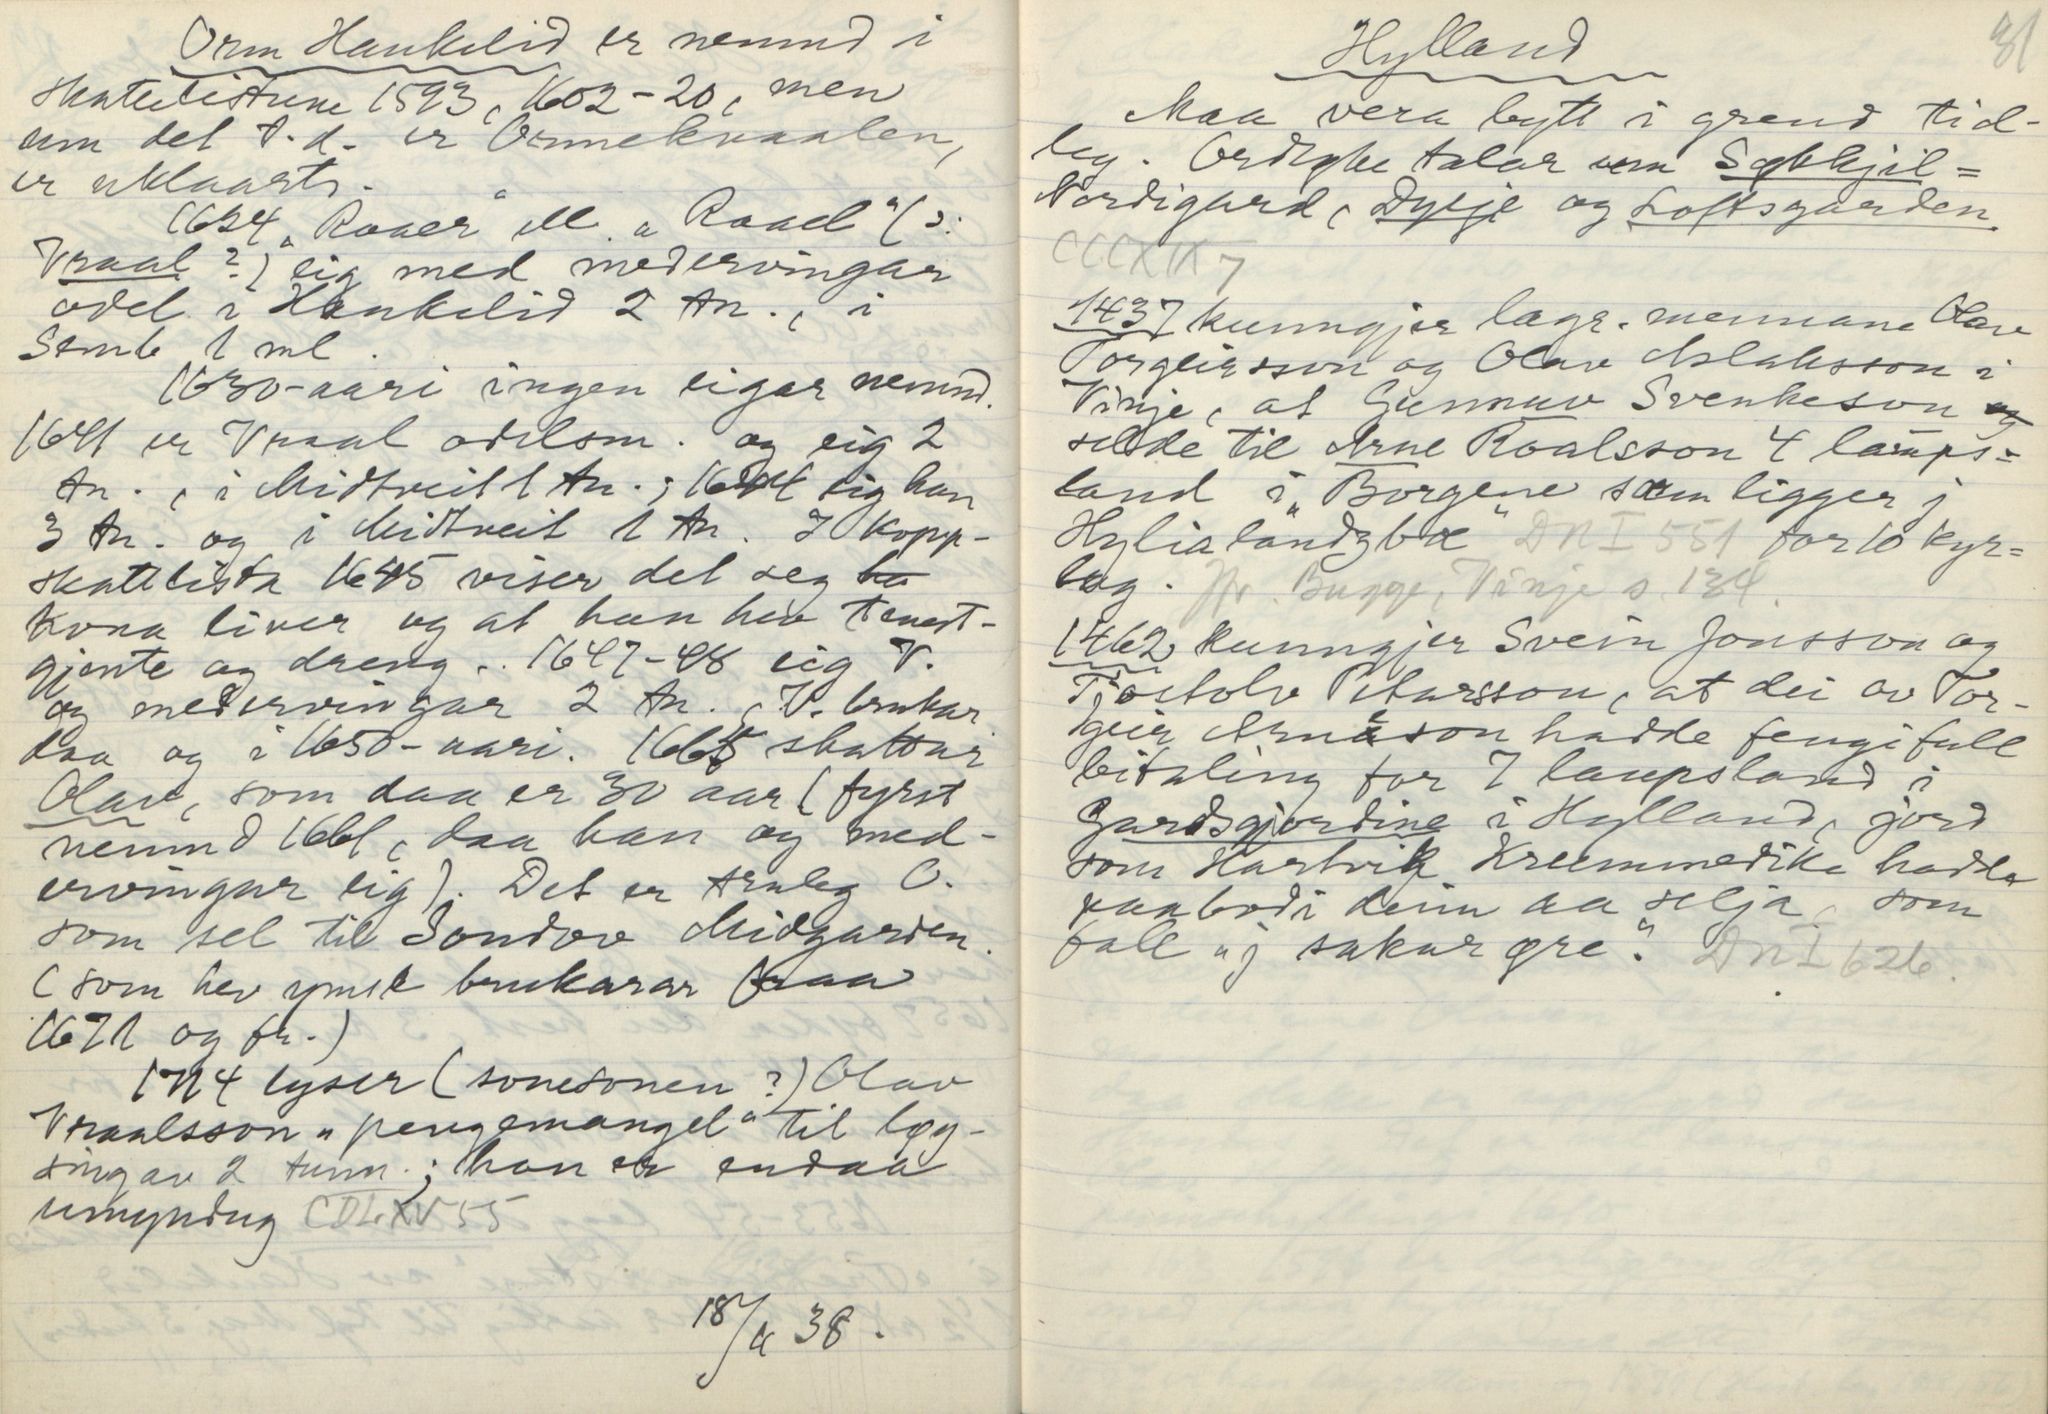 Orm Haukelid er nemnd i
skattelistune 1593, 1602-20, men
um det t.d. er Ormekvaalen,
er uklaart.
1624 „Roaer“ ell. „Roael“ (ɔ:
Vraal?) eig med medervingar
odel i Haukelid 2 tn., i
Semb 1 ml.
1630-aari ingen eigar nemnd.
1641 er Vraal odelsm. og eig 2
tn., i Midtveit 1 tn.; 1644 eig han
3 tn. og i Midtveit 1 tn. I kopp-
skattlista 1645 viser det seg
kona liver og at han hev tenest-
gjente og dreng. 1647-48 eig V.
og medervingar 2 tn., V. brukar
daa og i 1650-aari. 1665 skattar
Olav, som daa er 30 aar (fyrst
nemnd 1661, daa han og med-
ervingar eig). Det er truleg O.
som sel til Sondov Midgarden.
(som hev ymse brukarar fraa
1671 og fr.)
1714 lyser (sonesonen?) Olav
Vraalsson „pengemangel“ til løy-
sing av 2 tunn.; han er endaa
umyndug CDLXV 55
18/ 38.
31
Hylland
Maa vera bytt i grend tid-
leg. Ordtøke talar um =
Nordigard, Dyrje og Loftsgarden.
CCCXIX 7
1437 kunngjer lagr.mennane Olav
Torgeirsson og Olav Aslaksson i
Vinje, at Gunnuv Svenkeson og
selde til Arne Roalsson 4 laups-
land i „Borgene“ som ligger j
Hylialandzbø DN I 551 for 10 kyr-
lag. Jfr. Bugge, Vinje s. 134.
1462 kunngjer Svein Jonsson og
Tjostolv Petarsson, at dei av Tor-
geir Arneson hadde fengi full
bitaling for 7 laupsland i
Gardsgjordine i Hylland, jord
som Hartvik Krummedike hadde
paabodi deim aa selja, som
fall „j sakar øre“. DN I 626.